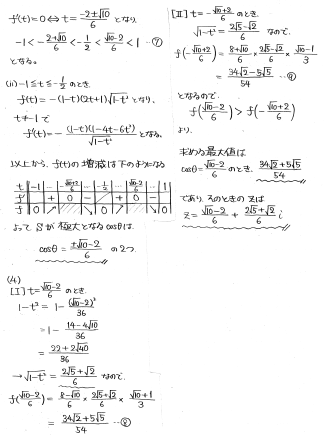 f'(t)=0 ⇔ t = (-2±√10)/6 となり、
-1 < -(2+√10)/6 < -1/2 < (√10-2)/6 < 1 …⑦
となる。
(ii) -1≦t≦-1/2 のとき
f(t) = -(1-t)(2t+1)√(1-t²) となり、
t≠-1 で
f'(t) = -(1-t)(1-4t-6t²)/√(1-t²) となる。
以上から、f(t)の増減は下のようになる
t | -1 | … | -(√10+2)/6 | … | -1/2 | … | (√10-2)/6 | … | 1
f' | | + | 0 | - | | + | 0 | - |
f | 0 | ↗ | | ↘ | 0 | ↗ | | ↘ | 0
よって Sが極大となるcosθは
cosθ = (±√10-2)/6 の2つ
(4)
[I] t = (√10-2)/6 のとき
1-t² = 1 - (√10-2)²/36
= 1 - (14-4√10)/36
= (22+2√40)/36
→ √(1-t²) = (2√5+√2)/6 なので、
f((√10-2)/6) = (8-√10)/6 × (2√5+√2)/6 × (√10+1)/3
= (34√2+5√5)/54 …⑧
[II] t = -(√10+2)/6 のとき、
√(1-t²) = (2√5-√2)/6 なので、
f(-(√10+2)/6) = (8+√10)/6 × (2√5-√2)/6 × (√10-1)/3
= (34√2-5√5)/54 …⑨
となるので
f((√10-2)/6) > f(-(√10+2)/6)
より、
求める最大値は
cosθ = (√10-2)/6 のとき、(34√2+5√5)/54
であり、そのときの Zは
z = (√10-2)/6 + (2√5+√2)/6 i